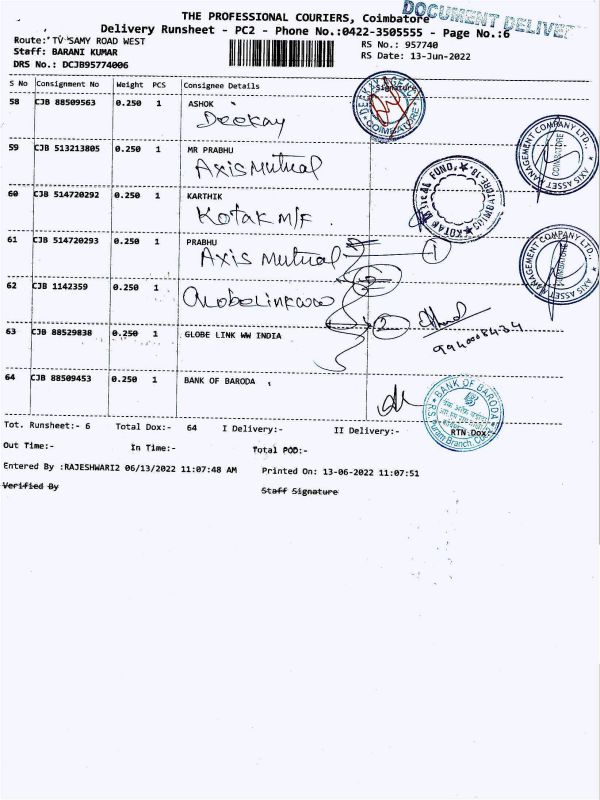 THE PROFESSIONAL COURIERS, Coimbatore
DOCUMENT DELIVE
Delivery Runsheet - PC2 - Phone No.:0422-3505555 - Page No.:6
Route: TV SAMY ROAD WEST
RS No.: 957740
Staff: BARANI KUMAR
RS Date: 13-Jun-2022
DRS No.: DCJB95774006
S No Consignment No Weight PCS Consignee Details Signature
58 CJB 88509563 0.250 1 ASHOK
Deekay
COIMBATORE
59 CJB 513213805 0.250 1 MR PRABHU
Axis Mutual
AXIS ASSET MANAGEMENT COMPANY LTD.,
COIMBATORE
60 CJB 514720292 0.250 1 KARTHIK
Kotak M/F.
KOTAK MUTUAL FUND, COIMBATORE-18
61 CJB 514720293 0.250 1 PRABHU
Axis Mutual
1
AXIS ASSET MANAGEMENT COMPANY LTD.,
COIMBATORE
62 CJB 1142359 0.250 1
Globelink ww
2
9940008434
63 CJB 88529838 0.250 1 GLOBE LINK WW INDIA
64 CJB 88509453 0.250 1 BANK OF BARODA
BANK OF BARODA
Tot. Runsheet:- 6 Total Dox:- 64 I Delivery:- II Delivery:- RTN Dox:
Out Time:- In Time:- Total POD:-
Entered By :RAJESHWARI2 06/13/2022 11:07:48 AM Printed On: 13-06-2022 11:07:51
Verified By Staff Signature